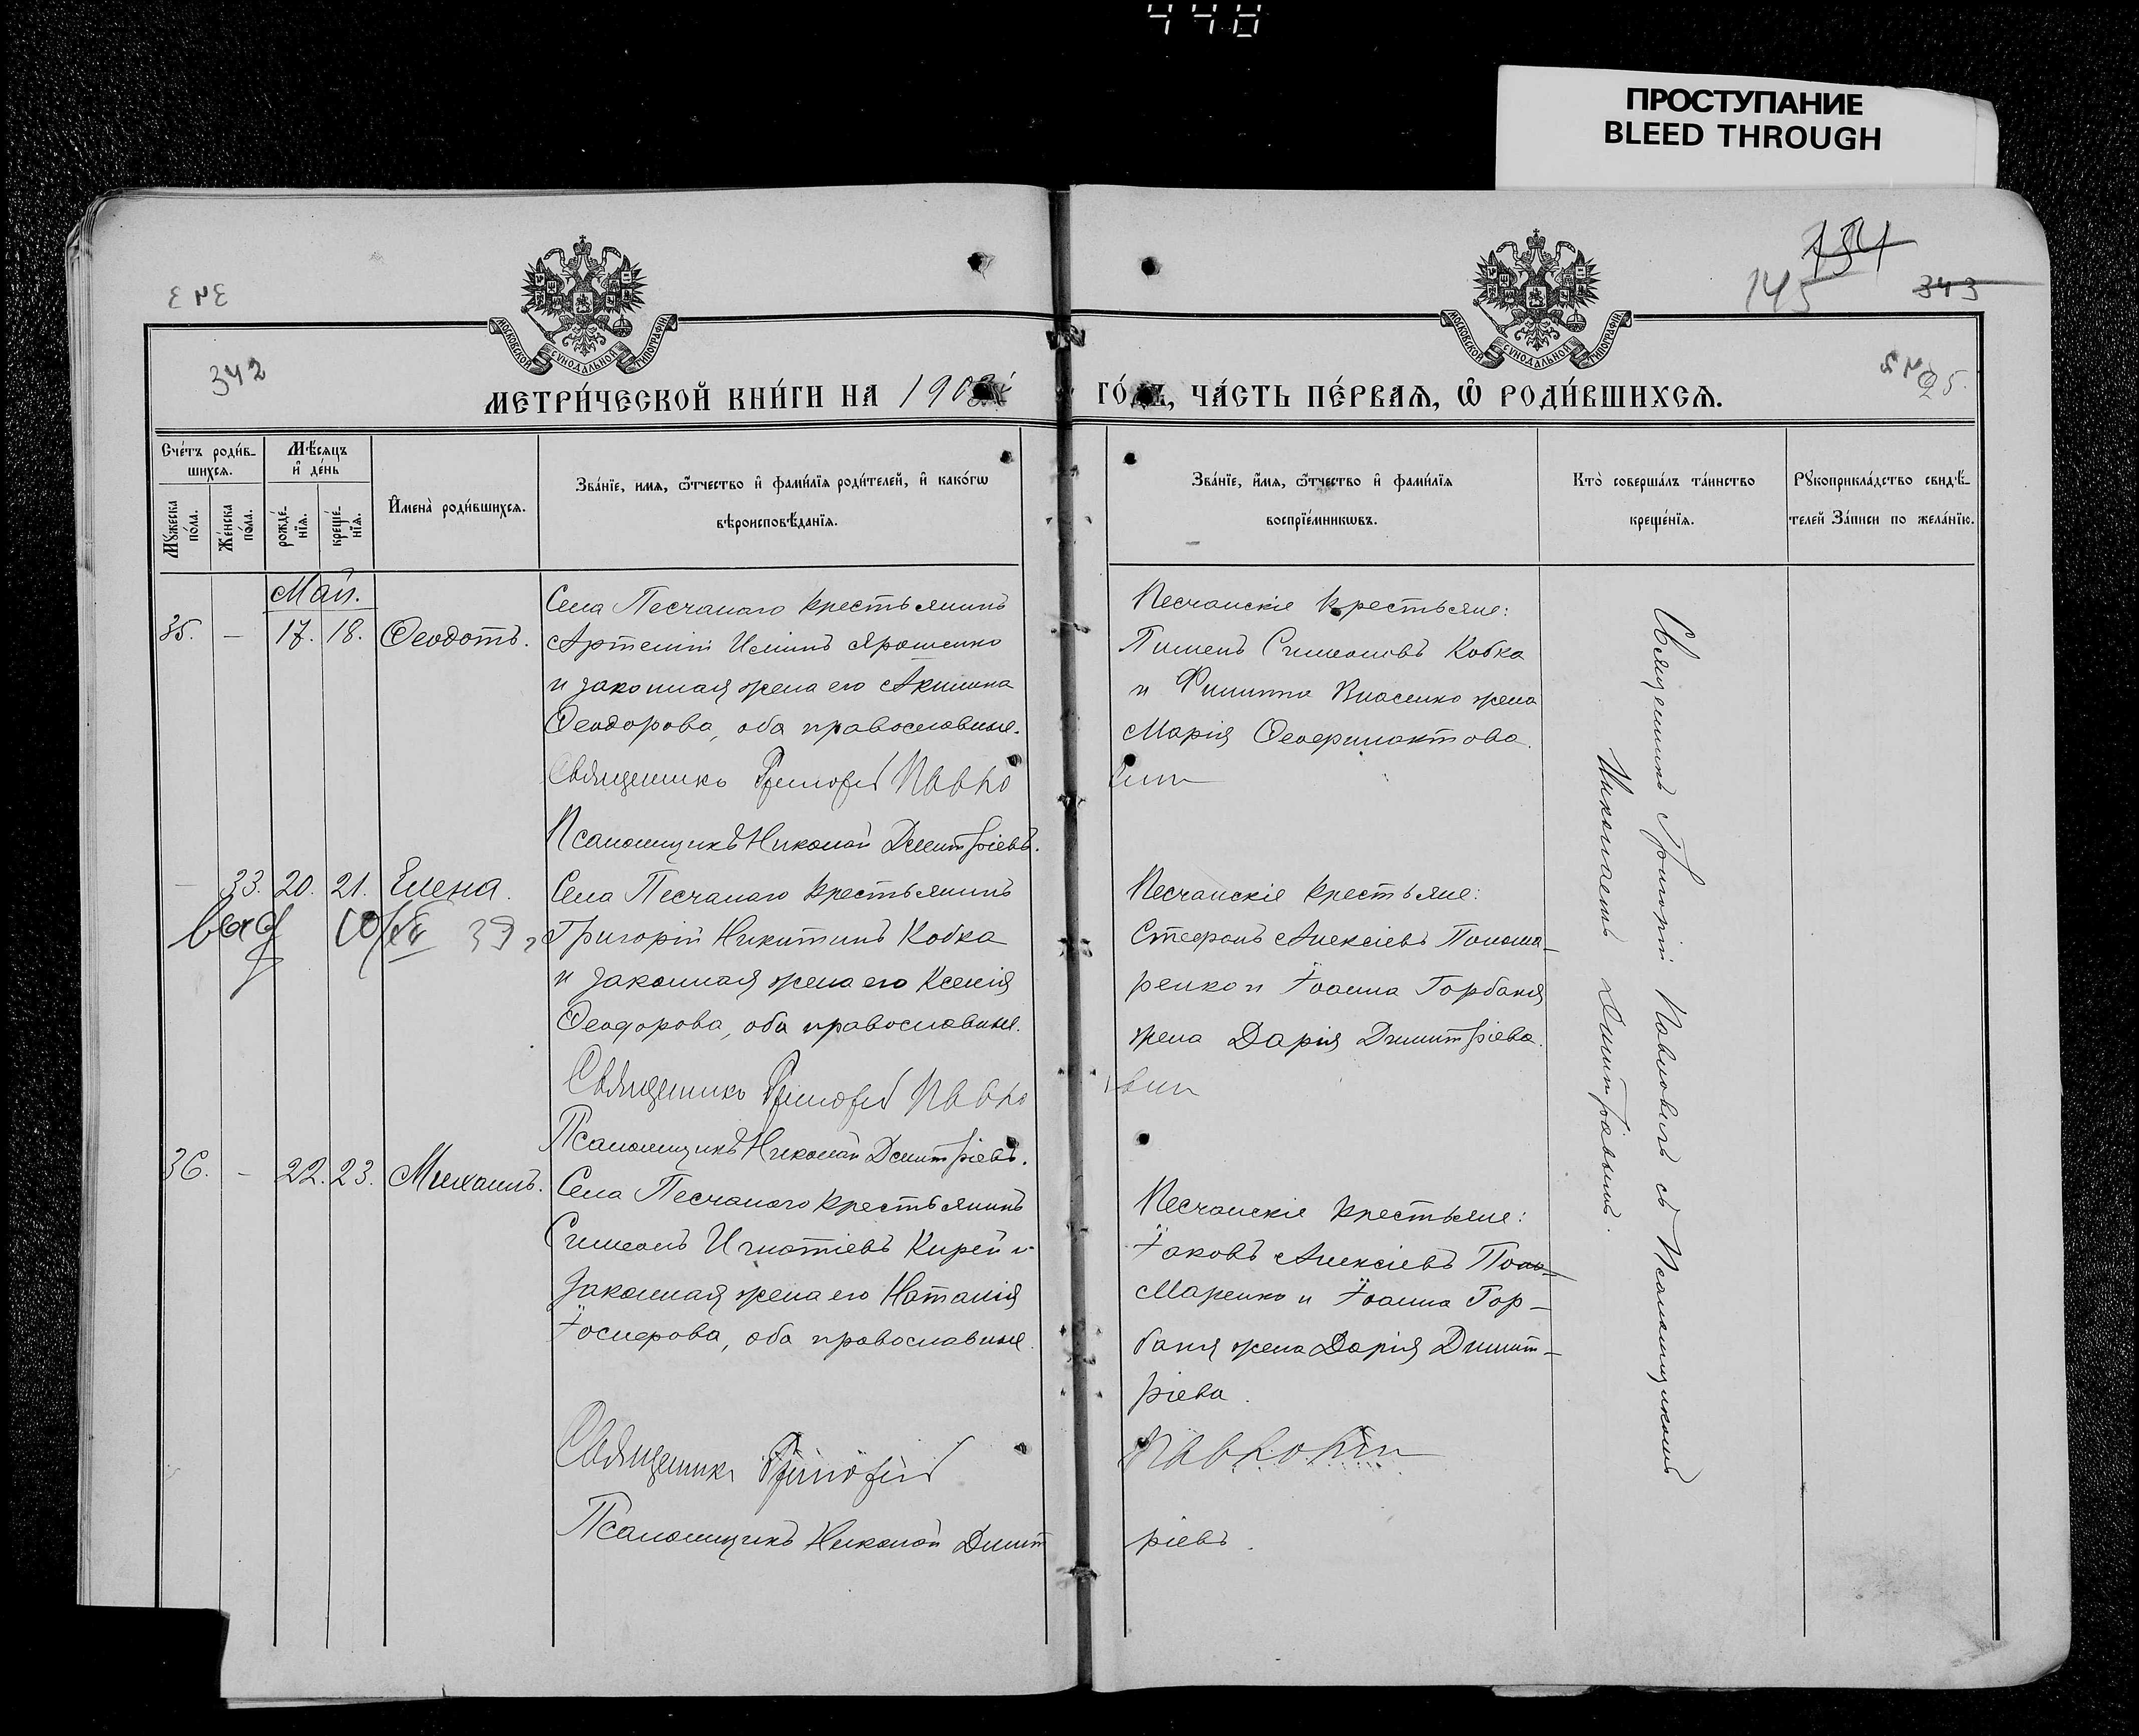 448
ПРОСТУПАНИЕ
BLEED THROUGH
134
145
343
342
25.
МОСКОВСКОЙ СѴНОДАЛЬНОЙ ТИПОГРАФІИ
МОСКОВСКОЙ СѴНОДАЛЬНОЙ ТИПОГРАФІИ
МЕТРИ́ЧЕСКОЙ КНИ́ГИ НА 190
ГО́ДЪ, ЧА́СТЬ ПЕ́РВАЯ, Ѡ҆ РОДИ́ВШИХСЯ.
Сче́тъ роди́вшихся.
Мꙋ́жеска по́ла.
Же́нска по́ла.
Мѣ́сяцъ и҆ де́нь
рожде́нїя.
креще́нїя.
И҆мена̀ роди́вшихся.
Зва́нїе, имя, ѻ҆́тчество и҆ фами́лїя роди́телей, и҆ како́гѡ
вѣроисповѣ́данїя.
Зва́нїе, и҆́мя, ѻ҆́тчество и҆ фами́лїя
воспрїе́мникѡвъ.
Кто̀ соверша́лъ та́инство
креще́нїя.
Рꙋкоприкла́дство свидѣ́-
телей За́писи по жела́нїю.
Май.
35. — 17. 18. Ѳеодотъ.
Села Песчанаго крестьянинъ
Артемій Исаинъ Ярошенко
и законная жена его Акилина
Ѳеодорова, оба православные.
Священникъ Григорій Павло
Псаломщикъ Николай Димитріевъ.
Песчанскіе крестьяне:
Пименъ Симеоновъ Кобка
и Филиппа Власенко жена
Марія Ѳеофилактова.
вич
— 33. 20. 21. Елена.
Села Песчанаго крестьянинъ
Григорій Никитинъ Кобка
и законная жена его Ксенія
Ѳеодорова, оба православные.
Священникъ Григорій Павло
Псаломщикъ Николай Димитріевъ.
Песчанскіе крестьяне:
Стефанъ Алексіевъ Понома-
ренко и Іоанна Горбаня
жена Дарія Димитріева.
вич
36. — 22. 23. Михаилъ.
Села Песчанаго крестьянинъ
Симеонъ Игнатіевъ Кирей и
законная жена его Наталія
Іосифова, оба православные.
Священникъ Григорій
Псаломщикъ Николай Димит
Песчанскіе крестьяне:
Іаковъ Алексіевъ Поно-
маренко и Іоанна Гор-
баня жена Дарія Димит-
ріева.
Павлович
ріевъ.
Священникъ Григорій Павловичъ съ Псаломщикомъ
Николаемъ Димитріевымъ.